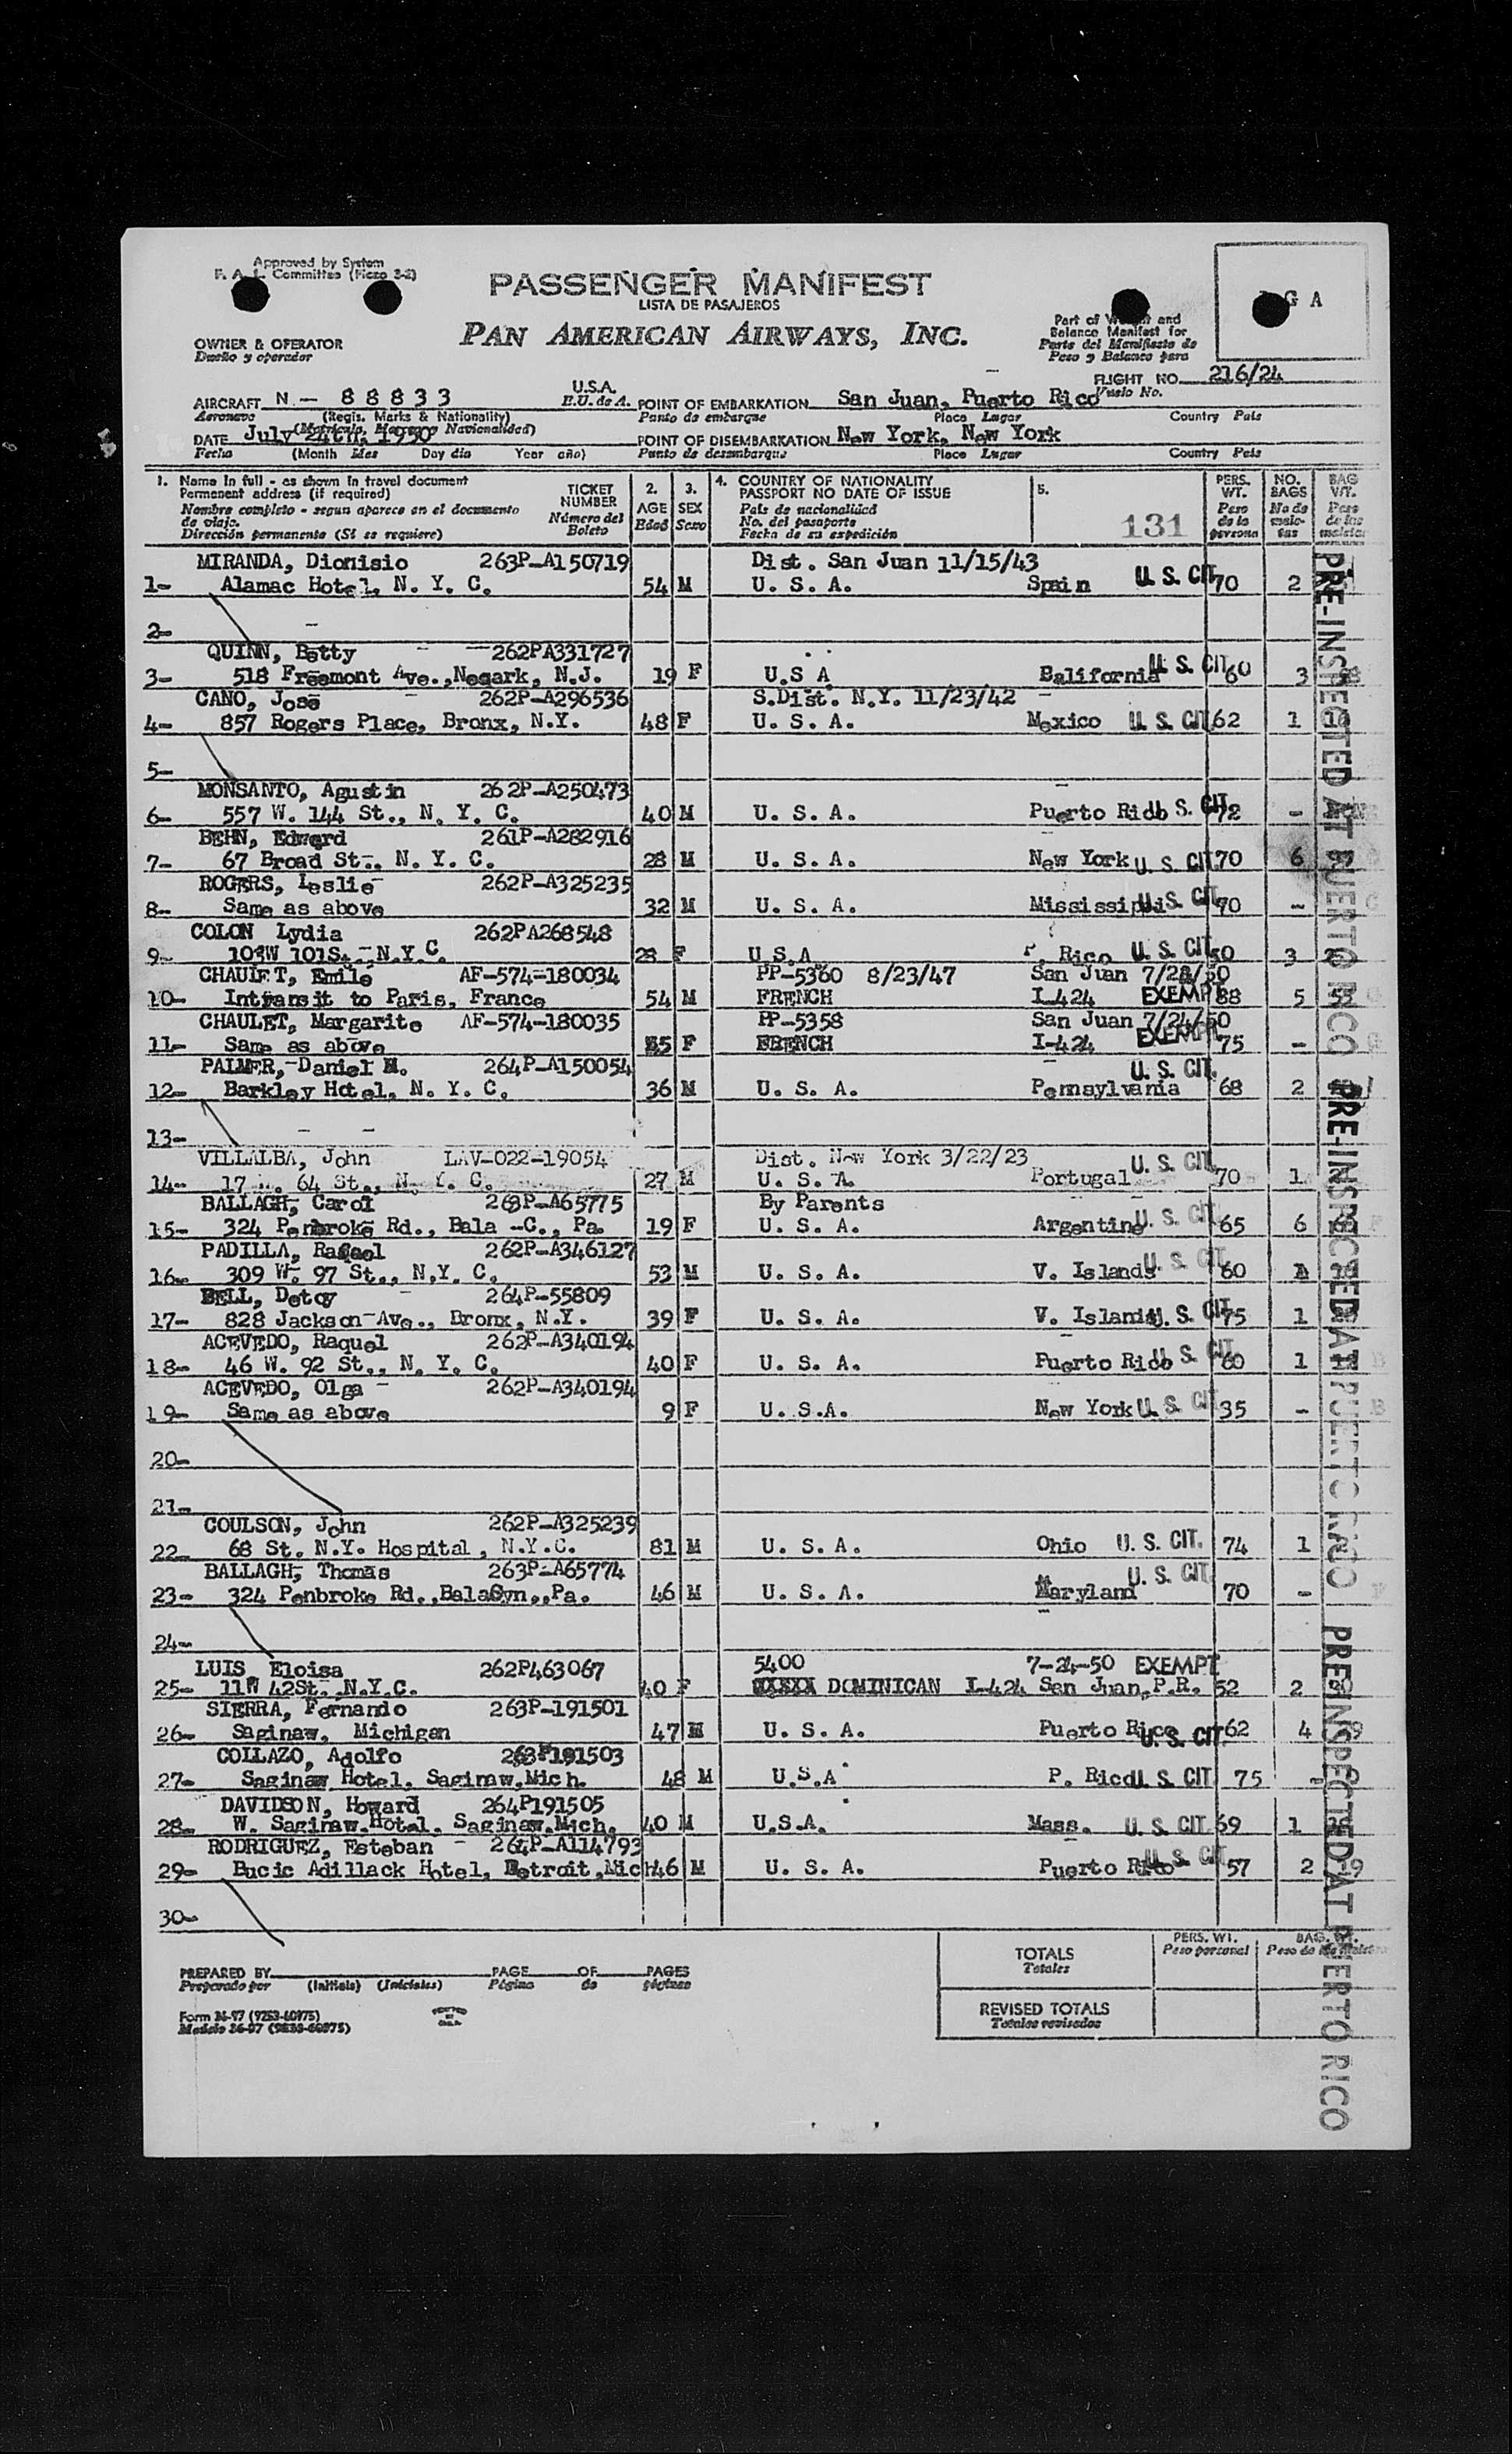 Approved by System
F. A. L. Committee (Ficao 3-2)
PASSENGER MANIFEST
LISTA DE PASAJEROS
PAN AMERICAN AIRWAYS, INC.
G A
OWNER & OPERATOR
Dueño y operador
Part of and
Balance Manifest for
Parte del Manifiesto de
Peso y Balance para
FLIGHT NO. 216/24
Vuelo No.
AIRCRAFT N - 88833 U.S.A.
Aeronave (Regis. Marks & Nationality) E.U. de A.
(Matricula, Marcas y Nacionalidad)
POINT OF EMBARKATION San Juan, Puerto Rico
Punto de embarque Place Lugar Country Pais
DATE July 24th, 1950
Fecha (Month Mes Day dia Year año)
POINT OF DISEMBARKATION New York, New York
Punto de desembarque Place Lugar Country Pais
1. Name in full - as shown in travel document
Permanent address (if required)
Nombre completo - segun aparece en el documento
de viaje.
Dirección permanente (Si se requiere)
TICKET
NUMBER
Número del
Boleto
2.
AGE
Edad
3.
SEX
Sexo
4. COUNTRY OF NATIONALITY
PASSPORT NO DATE OF ISSUE
Pais de nacionalidad
No. del pasaporte
Fecha de su expedición
5.
131
PERS.
WT.
Peso
de la
persona
NO.
BAGS
No de
male-
tas
BAG
WT.
Peso
de las
maletas
MIRANDA, Dionisio 263P-A150719 Dist. San Juan 11/15/43
1- Alamac Hotel, N. Y. C. 54 M U. S. A. Spain U. S. CIT 70 2
2-
QUINN, Betty 262PA331727
3- 518 Freemont Ave.,Negark, N.J. 19 F U.S A Balifornia U. S. CIT 60 3
CANO, Jose 262P-A296536 S.Dist. N.Y. 11/23/42
4- 857 Rogers Place, Bronx, N.Y. 48 F U. S. A. Mexico U. S. CIT 62 1
5-
MONSANTO, Agustin 262P-A250473
6- 557 W. 144 St., N. Y. C. 40 M U. S. A. Puerto Rico U. S. CIT. 72 -
BEHN, Edward 261P-A282916
7- 67 Broad St., N. Y. C. 28 M U. S. A. New York U. S. CIT 70 6
ROGERS, Leslie 262P-A325235
8- Same as above 32 M U. S. A. Mississippi U. S. CIT. 70 -
COLON Lydia 262PA268548
9- N.Y.C. 28 F U S A P. Rico U. S. CIT 50 3
CHAULET, Emile AF-574-180034 PP-5360 8/23/47 San Juan
10- Intransit to Paris, France 54 M FRENCH I-424 EXEMPT 88 5
CHAULET, Margarite AF-574-180035 PP-5358 San Juan 7/24/50
11- Same as above F FRENCH I-424 EXEMPT 75 -
PALMER, Daniel H. 264P-A150054 U. S. CIT.
12- Barkley Hotel, N. Y. C. 36 M U. S. A. Pennsylvania 68 2
13-
VILLALBA, John LAV-022-19054 Dist. New York 3/22/23
14- 17 64 St., N. Y. C. 27 M U. S. A. Portugal U. S. CIT. 70 1
BALLAGH, Carol 263P-A65775 By Parents
15- 324 Penbroke Rd., Bala -C., Pa. 19 F U. S. A. Argentine U. S. CIT. 65 6
PADILLA, Rafael 262P-A346127
16- 309 W. 97 St., N.Y. C. 53 M U. S. A. V. Islands U. S. CIT. 60
BELL, Detcy 264P-55809
17- 828 Jackson Ave., Bronx, N.Y. 39 F U. S. A. V. Islands U. S. CIT 75 1
ACEVEDO, Raquel 262P-A340194
18- 46 W. 92 St., N. Y. C. 40 F U. S. A. Puerto Rico U. S. CIT. 60 1
ACEVEDO, Olga 262P-A340194
19- Same as above 9 F U. S.A. New York U. S. CIT 35 -
20-
21-
COULSON, John 262P-A325239
22- 68 St. N.Y. Hospital, N.Y.C. 81 M U. S. A. Ohio U. S. CIT. 74 1
BALLAGH, Thomas 263P-A65774
23- 324 Penbroke Rd.,BalaCyn.,Pa. 46 M U. S. A. Maryland U. S. CIT. 70 -
24-
LUIS, Eloisa 262P463067 5400 7-24-50 EXEMPT
25- 11W 42St. N.Y.C. 40 F XXXXX DOMINICAN I-424 San Juan,P.R. 52 2
SIERRA, Fernando 263P-191501
26- Saginaw, Michigan 47 M U. S. A. Puerto Rico U. S. CIT 62 4
COLLAZO, Adolfo 263P191503
27- Saginaw Hotel, Saginaw,Mich. 48 M U.S.A P. Rico U. S. CIT 75 -
DAVIDSON, Howard 264P191505
28- W. Saginaw.Hotel. Saginaw.Mich. 40 M U.S.A. Mass. U. S. CIT. 69 1
RODRIGUEZ, Esteban 264P-A114793
29- Bucic Adillack Hotel, Detroit,Mich 46 M U. S. A. Puerto Rico U. S. CIT. 57 2
30-
PRE-INSPECTED AT PUERTO RICO
PRE-INSPECTED AT PUERTO RICO
PRE-INSPECTED AT PUERTO RICO
PREPARED BY PAGE OF PAGES
Preparado por (Initials) (Iniciales) Página de páginas
TOTALS
Totales
PERS. WT.
Peso personal
BAG. WT.
REVISED TOTALS
Totales revisados
Form 36-97 (9253-60975)
PRINTED
IN
U.S.A.